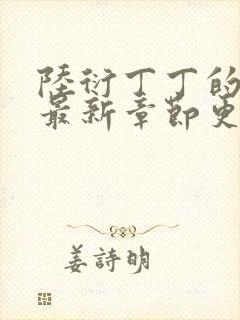 陸衍丁丁的
最新章節更
姜詩明